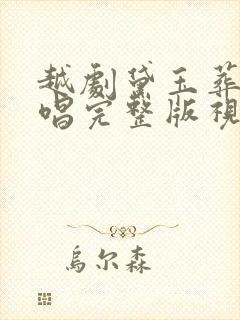 越劇黛玉葬
唱完整版視
烏尔森